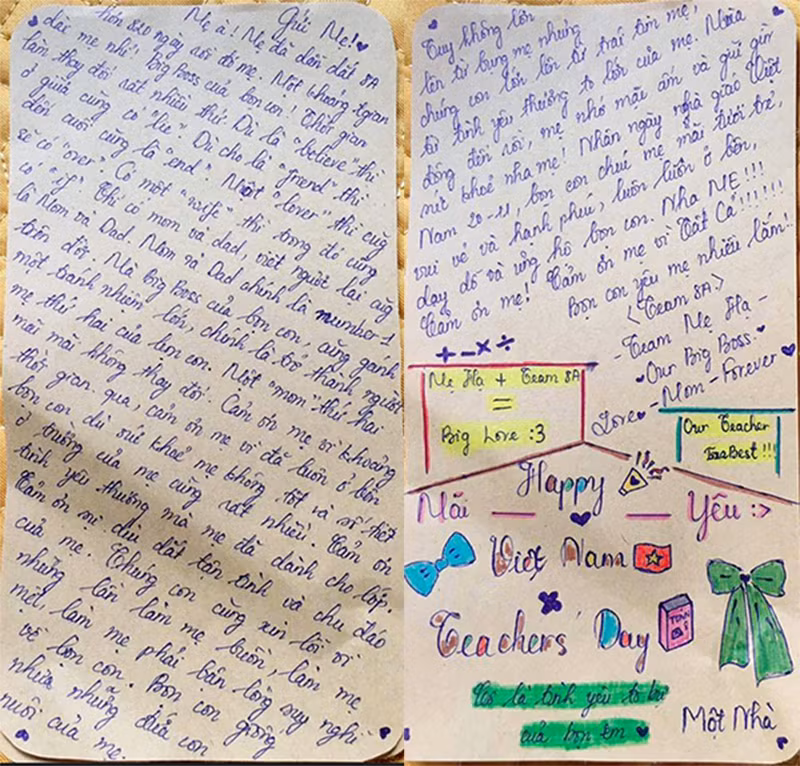 Gửi Mẹ!
Mẹ à! Mẹ đã dẫn dắt 8A
hơn 820 ngày rồi đó mẹ. Một khoảng tgian
dài mẹ nhỉ! Big Boss của bọn con! Thời gian
làm thay đổi rất nhiều thứ. Dù là "believe" thì
ở giữa cũng có "lie". Dù cho là "friend" thì
đến cuối cũng là "end". Một "lover" thì cũg
sẽ có "over". Có một "wife" thì trong đó cũng
có "if". Thì có mom và dad, viết ngược lại cũg
là Mom và Dad. Mom và Dad chính là number 1
trên đời. Mà Big Boss của bọn con, cũng gánh
một tránh nhiệm lớn, chính là trở thành người
mẹ thứ hai của bọn con. Một "mom" thứ hai
mãi mãi không thay đổi. Cảm ơn mẹ vì khoảng
thời gian qua, cảm ơn mẹ vì đã luôn ở bên
bọn con dù sức khoẻ mẹ không tốt và số tiết
ở trường của mẹ cũng rất nhiều. Cảm ơn
tình yêu thương mà mẹ đã dành cho lớp.
Cảm ơn sự dìu dắt tận tình và chu đáo
của mẹ. Chúng con cũng xin lỗi vì
những lần làm mẹ buồn, làm mẹ
mệt, làm mẹ phải bận lòng suy nghĩ
về bọn con. Bọn con giống
như những đứa con
nuôi của mẹ.
Tuy không lớn
lên từ bụng mẹ nhưng
chúng con lớn lên từ trái tim mẹ,
từ tình yêu thương to lớn của mẹ. Mùa
đông đến rồi, mẹ nhớ mãi ấm và giữ gìn
sức khoẻ nha mẹ! Nhân ngày nhà giáo Việt
Nam 20-11, bọn con chúc mẹ mãi tươi trẻ,
vui vẻ và hạnh phúc, luôn luôn ở bên,
dạy dỗ và ủng hộ bọn con. Nha MẸ!!!
Cảm ơn mẹ! Cảm ơn mẹ vì Tất Cả!!!!!!
Bọn con yêu mẹ nhiều lắm!
<Team 8A>
- Team Mẹ Hạ -
Our Big Boss
Love - Mom - Forever
+ - × ÷
Mẹ Hạ + Team 8A
=
Big Love :3
Our Teacher
Best!!!
Happy
Mãi Yêu :>
Việt Nam
Teachers' Day
TOÁN
là tình yêu to bự
của bọn em
Một Nhà